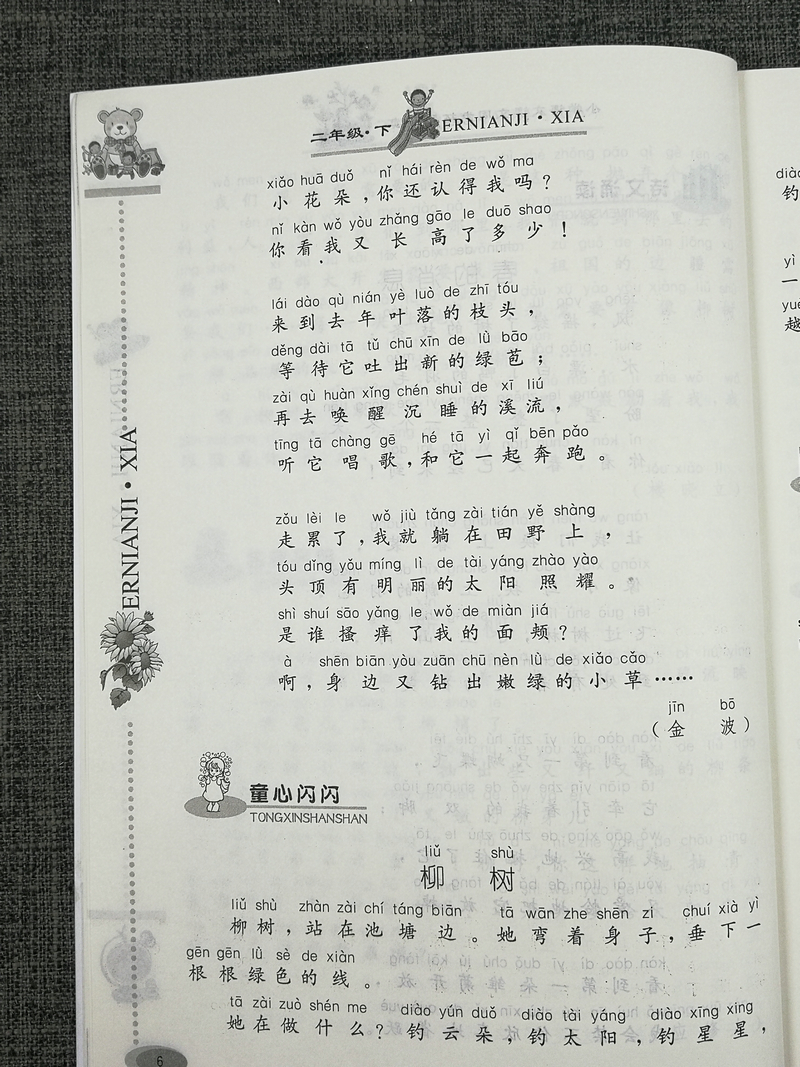 二年级·下 ERNIANJI·XIA
xiǎo huā duǒ nǐ hái rèn de wǒ ma
小花朵，你还认得我吗？
nǐ kàn wǒ yòu zhǎng gāo le duō shao
你看我又长高了多少！
lái dào qù nián yè luò de zhī tóu
来到去年叶落的枝头，
děng dài tā tǔ chū xīn de lǜ bāo
等待它吐出新的绿苞；
zài qù huàn xǐng chén shuì de xī liú
再去唤醒沉睡的溪流，
tīng tā chàng gē hé tā yì qǐ bēn pǎo
听它唱歌，和它一起奔跑。
zǒu lèi le wǒ jiù tǎng zài tián yě shàng
走累了，我就躺在田野上，
tóu dǐng yǒu míng lì de tài yáng zhào yào
头顶有明丽的太阳照耀。
shì shuí sāo yǎng le wǒ de miàn jiá
是谁搔痒了我的面颊？
à shēn biān yòu zuān chū nèn lǜ de xiǎo cǎo
啊，身边又钻出嫩绿的小草……
jīn bō
（金波）
ERNIANJI·XIA
童心闪闪
TONGXINSHANSHAN
liǔ shù
柳树
liǔ shù zhàn zài chí táng biān tā wān zhe shēn zi chuí xià yì
柳树，站在池塘边。她弯着身子，垂下一
gēn gēn lǜ sè de xiàn
根根绿色的线。
tā zài zuò shén me diào yún duǒ diào tài yáng diào xīng xing
她在做什么？钓云朵，钓太阳，钓星星，
6
diào
钓
yì
一
yuè
越